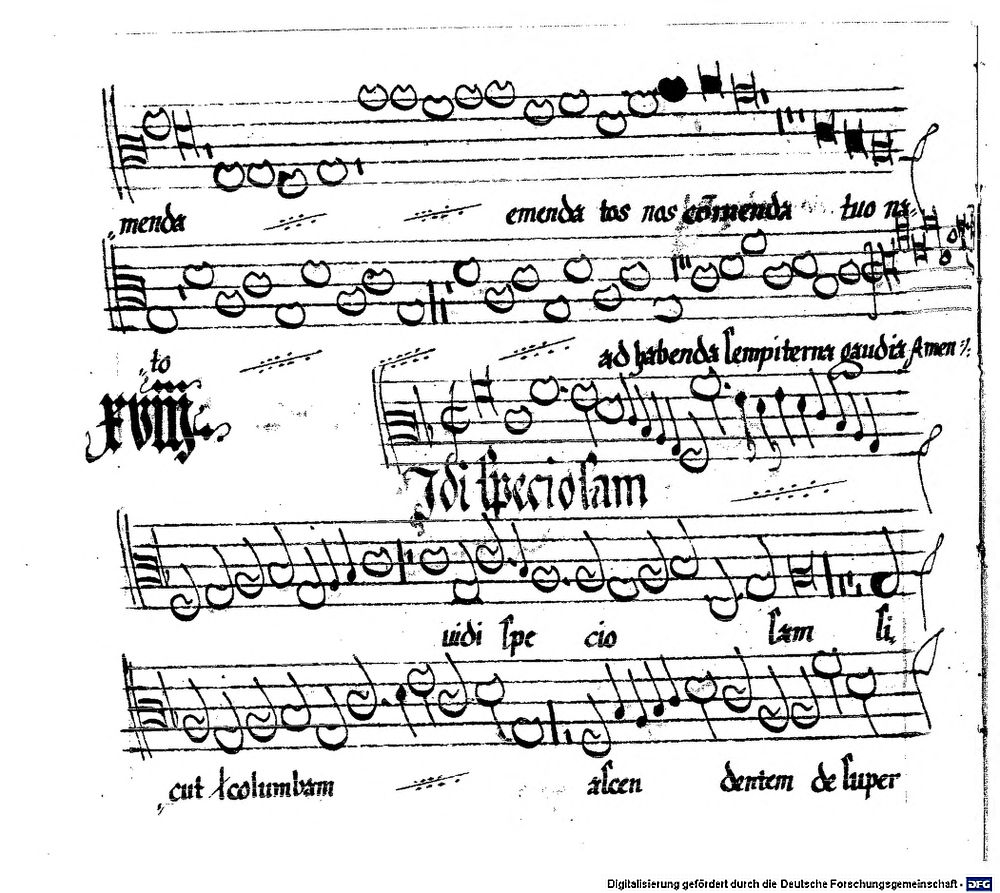 menda emenda tos nos cōmenda tuo na
to ad habenda sempiterna gaudia Amen
xviij
Idi speciosam
uidi spe cio sam si
cut columbam ascen dentem de super
Digitalisierung gefördert durch die Deutsche Forschungsgemeinschaft - DFG